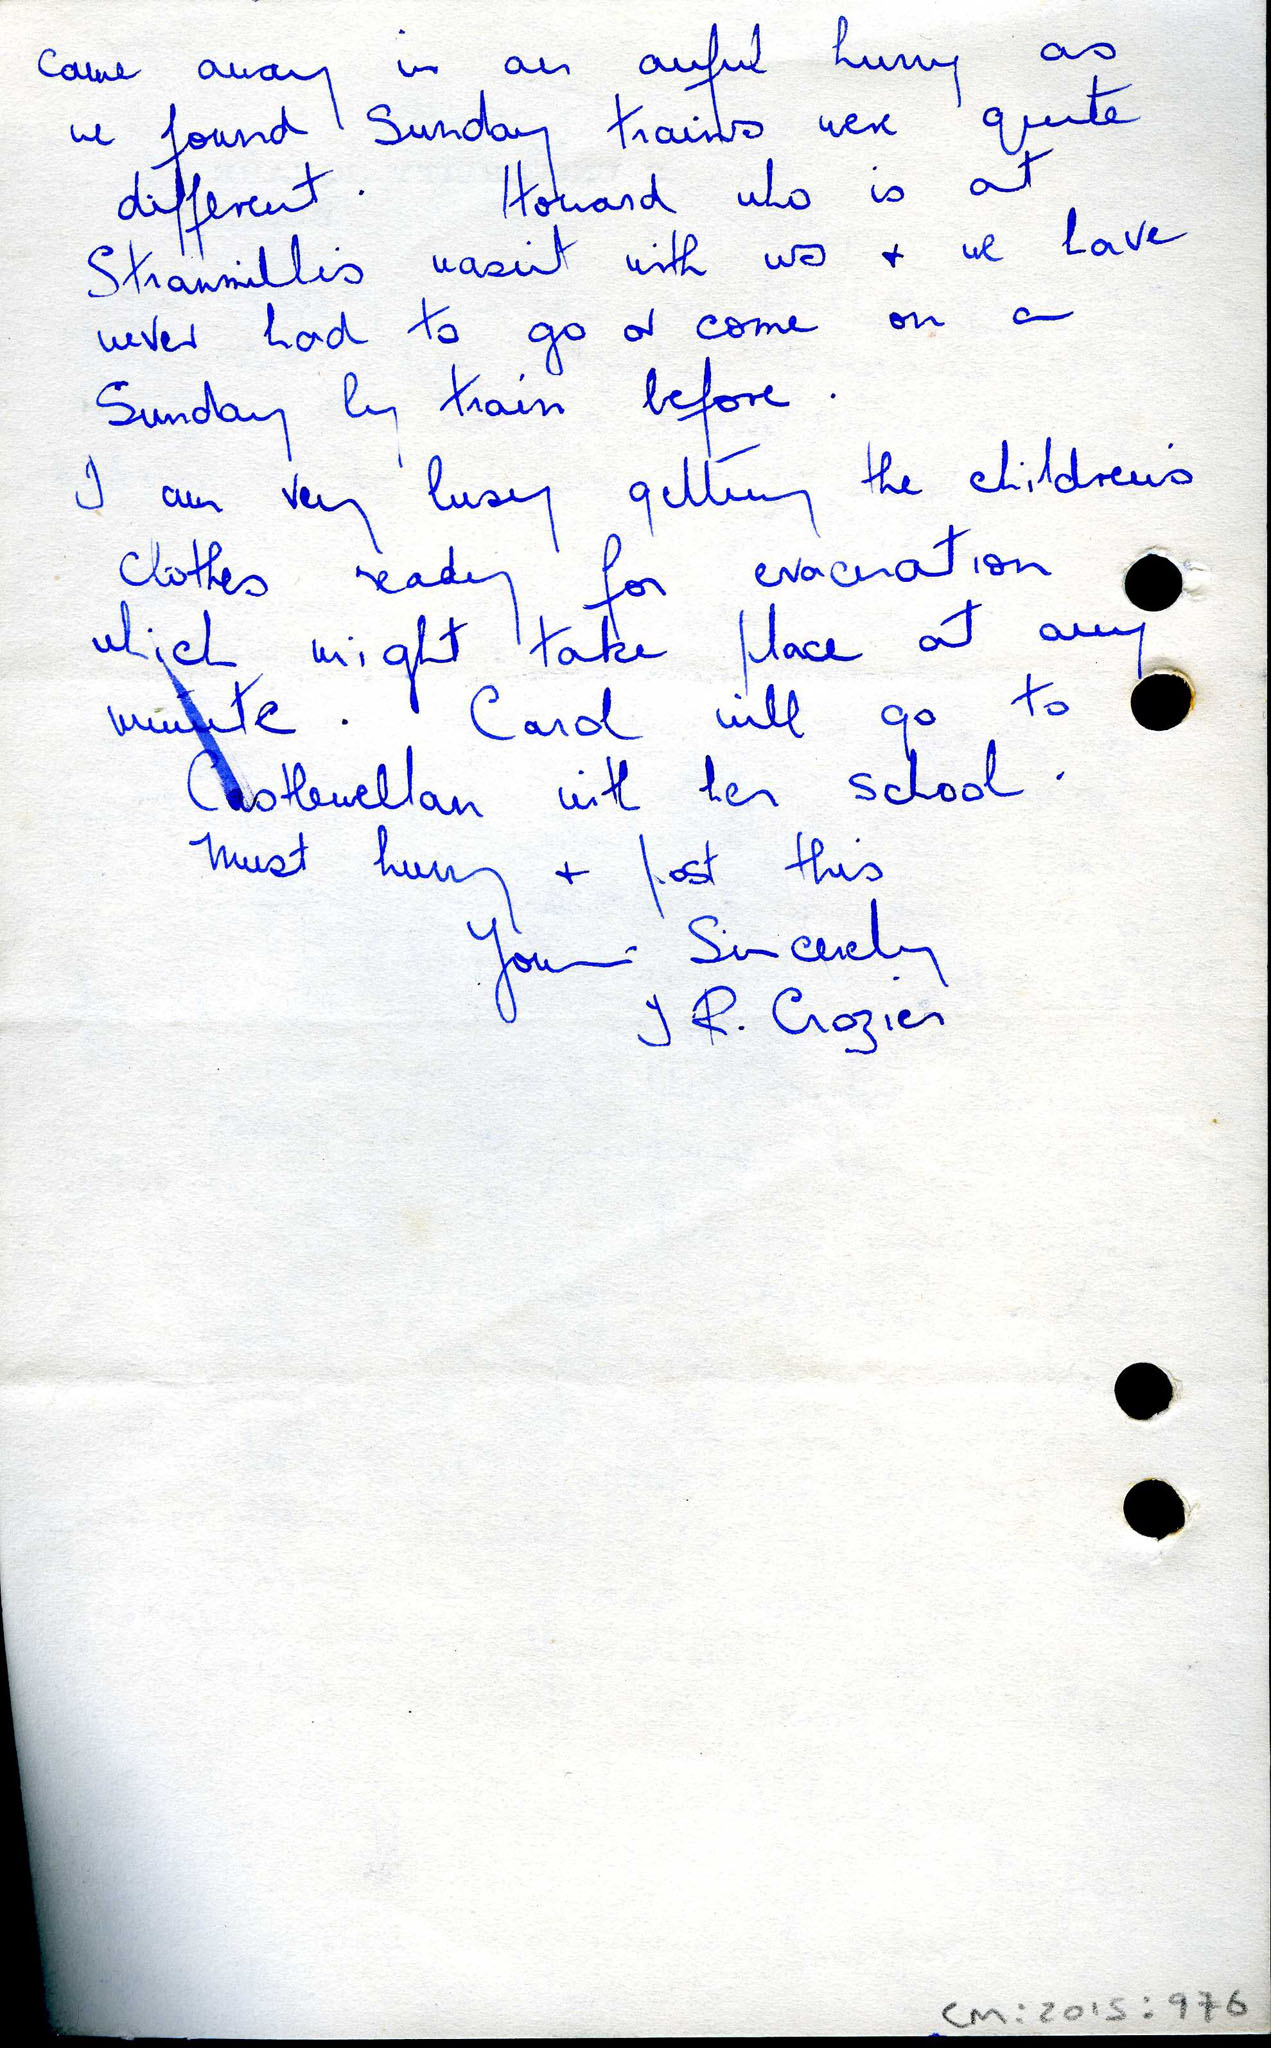 came away in an awful hurry as
we found Sunday trains were quite
different. Howard who is at
Stranmillis wasn't with us + we have
never had to go or come on a
Sunday by train before.
I am very busy getting the children's
clothes ready for evacuation
which might take place at any
minute. Carol will go to
Castlewellan with her school.
Must hurry + post this
Yours Sincerely
J R. Crozier
CM:2015:976